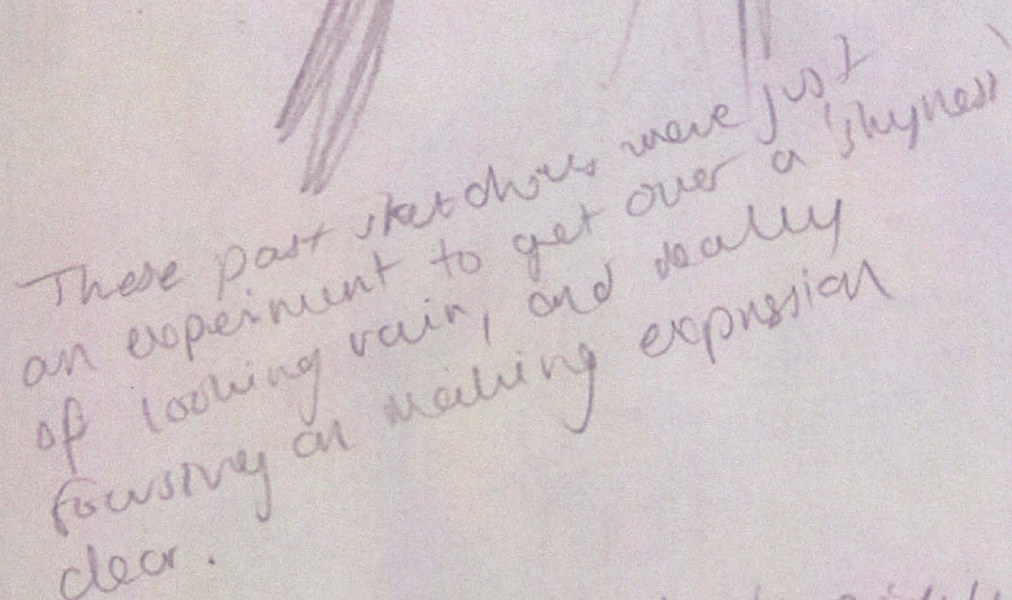 These past sketches were just
an experiment to get over a 'shyness'
of looking vain, and really
focusing on making expression
clear.